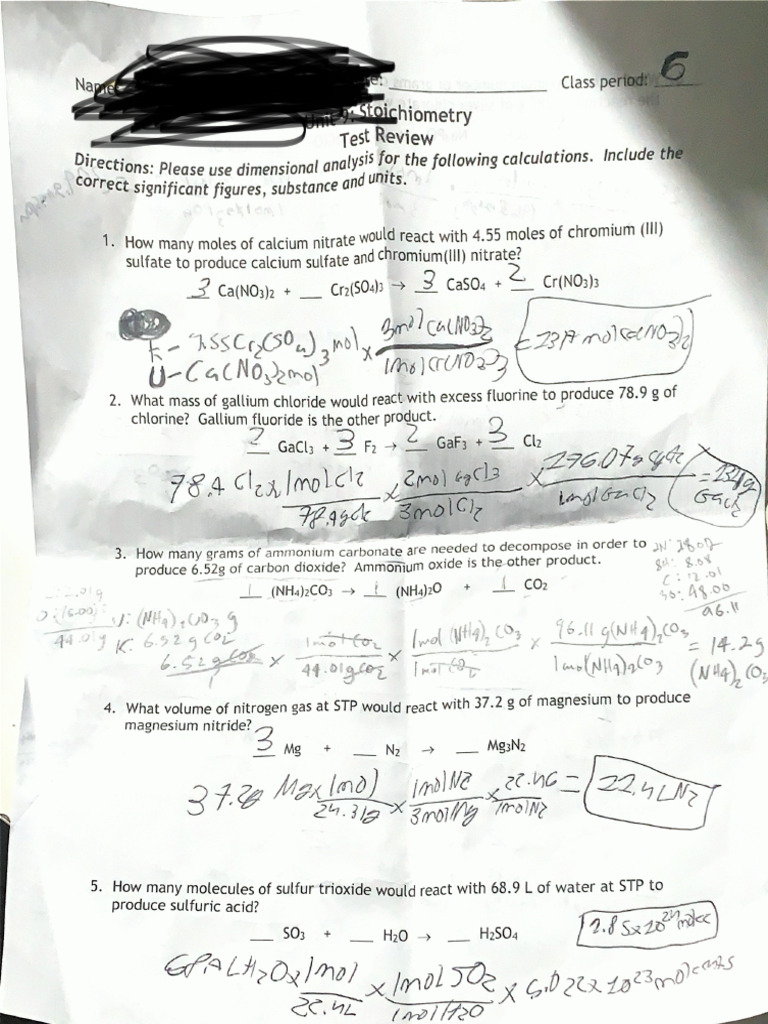 Name
Class period: 6
Unit 9: Stoichiometry
Test Review
Directions: Please use dimensional analysis for the following calculations. Include the
correct significant figures, substance and units.
1. How many moles of calcium nitrate would react with 4.55 moles of chromium (III)
sulfate to produce calcium sulfate and chromium(III) nitrate?
3 Ca(NO3)2 + __ Cr2(SO4)3 → 3 CaSO4 + 2 Cr(NO3)3
3mol Ca(NO3)2
K - Cr2(SO4)3 mol x
1mol Cr(NO3)3
U - Ca(NO3)2 mol
2. What mass of gallium chloride would react with excess fluorine to produce 78.9 g of
chlorine? Gallium fluoride is the other product.
2 GaCl3 + 3 F2 → 2 GaF3 + 3 Cl2
78.4 Cl2 x 1molCl2 x 2mol x 276.07g
3molCl2
3. How many grams of ammonium carbonate are needed to decompose in order to
produce 6.52g of carbon dioxide? Ammonium oxide is the other product.
8H: 8.08
C: 12.01
30: 48.00
96.11
1 (NH4)2CO3 → 1 (NH4)2O + 1 CO2
44.01g
U: (NH4)2CO3 g
K: 6.52g CO2
6.52g CO2 x 1mol CO2 x 1mol (NH4)2CO3 x 96.11 g(NH4)2CO3 = 14.2g
1 44.01g CO2 1mol CO2 1mol(NH4)2CO3 (NH4)2CO3
4. What volume of nitrogen gas at STP would react with 37.2 g of magnesium to produce
magnesium nitride?
3 Mg + __ N2 → __ Mg3N2
37.2g Mg x 1mol x 1molN2 x 22.4 = 22.4LN2
24.31g 3molMg 1molN2
5. How many molecules of sulfur trioxide would react with 68.9 L of water at STP to
produce sulfuric acid?
__ SO3 + __ H2O → __ H2SO4
1.85x10^24 molec
LH2O x 1mol x 1mol x 6.022x10^23 molecules
22.4L 1molH2O